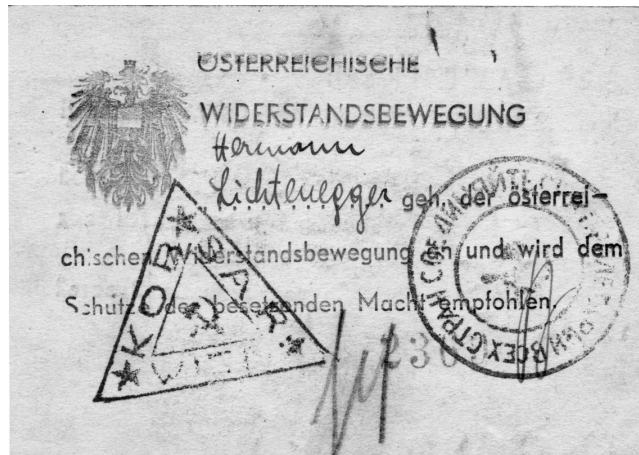 ÖSTERREICHISCHE
WIDERSTANDSBEWEGUNG
Hermann
Lichtenegger geh. der österrei–
chischen Widerstandsbewegung an und wird dem
Schutze der besetzenden Macht empfohlen.
KOB ★ SAR. ★ ★
ВСЕХ СТРАН СОЕДИНЯЙТЕСЬ
236